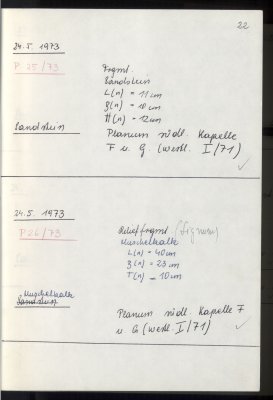 22
24.5.1973
P 25/73
Frgmt.
Sandstein
L(n) = 11 cm
B(n) = 10 cm
H(n) = 12 cm
Sandstein
Planum südl. Kapelle
F u. G (westl. I/71)
24.5.1973
P 26/73
Relieffrgmt
Muschelkalk
L(n) = 40 cm
B(n) = 23 cm
T(n) = 10 cm
Muschelkalk
Sandstein
Planum südl. Kapelle F
u. G (westl. I/71)